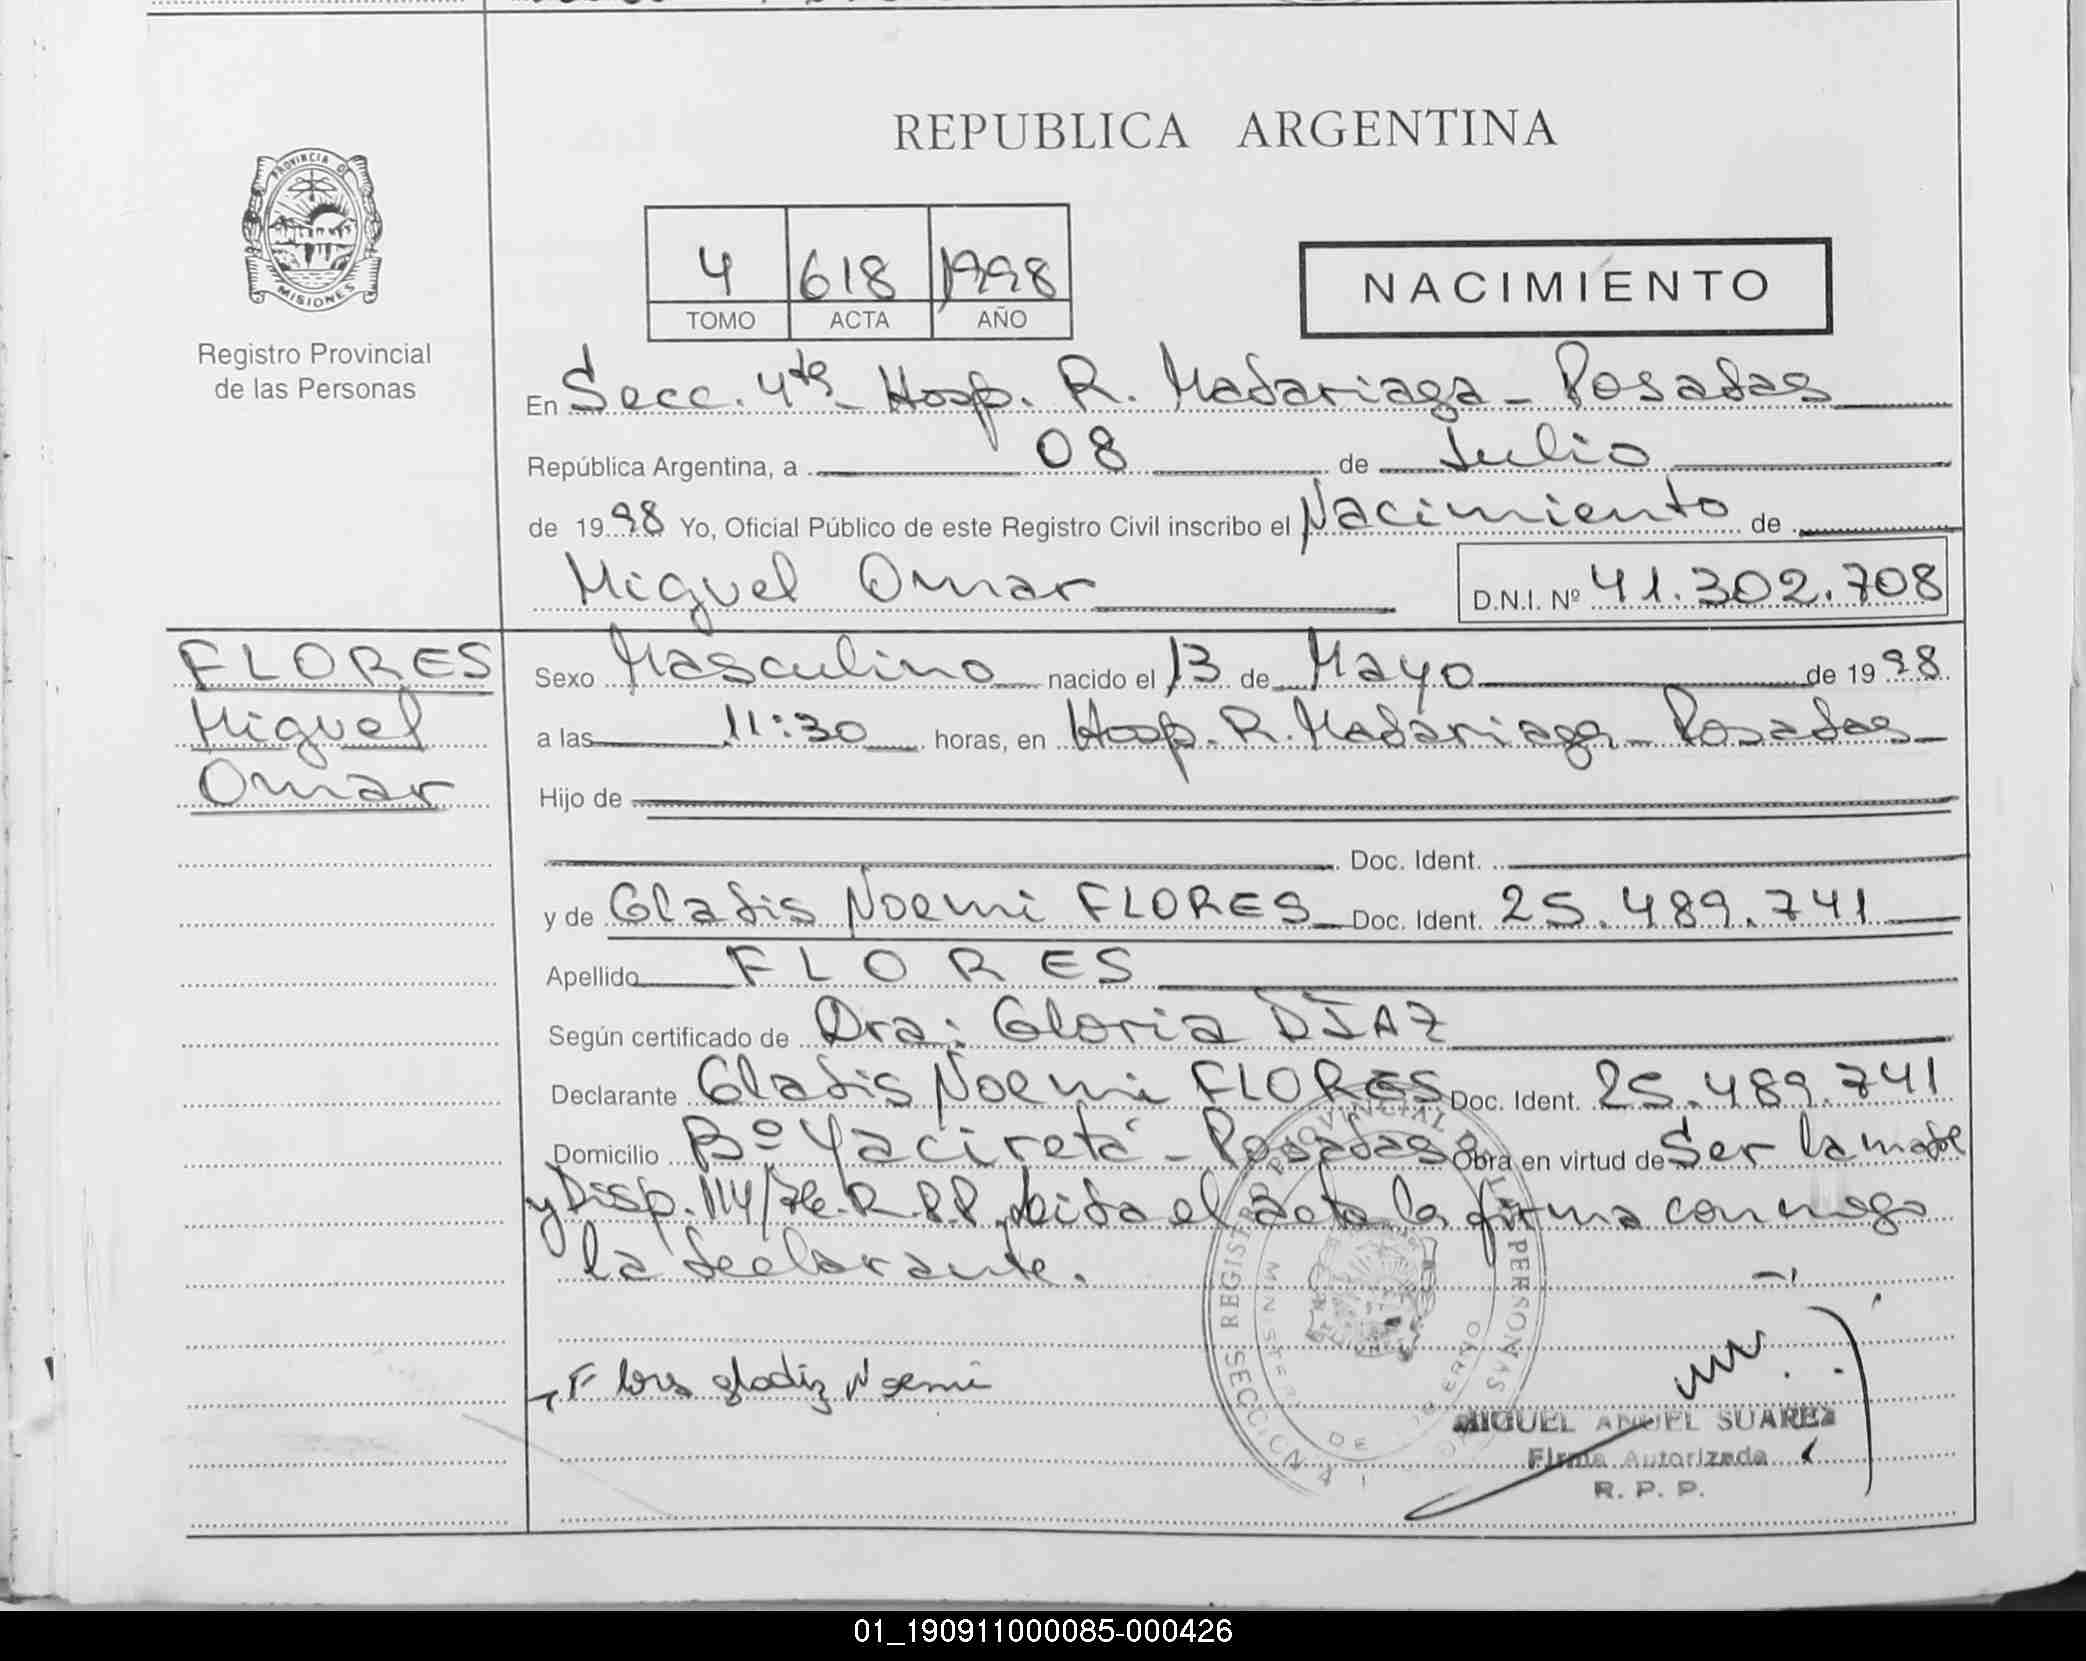 REPUBLICA ARGENTINA
PROVINCIA D
MISIONES
Registro Provincial
de las Personas
4 618 1998
TOMO ACTA AÑO
NACIMIENTO
En Secc. 4ta Hosp. R. Madariaga - Posadas
República Argentina, a 08 de Julio
de 1998 Yo, Oficial Público de este Registro Civil inscribo el Nacimiento de
Miguel Omar D.N.I. Nº 41.302.708
FLORES
Miguel
Omar
Sexo Masculino nacido el 13 de Mayo de 1998
a las 11:30 horas, en Hosp. R. Madariaga - Posadas
Hijo de
Doc. Ident.
y de Gladis Noemi FLORES Doc. Ident. 25.489.741
Apellido FLORES
Según certificado de Dra: Gloria DIAZ
Declarante Gladis Noemi FLORES Doc. Ident. 25.489.741
Domicilio Bº Yacireta - Posadas Obra en virtud de Ser la madre
y Disp. 114/76.R.P.P. leida el acta la firma conmigo
la declarante.
Flores gladiz Noemi
REGISTRO PROVINCIAL DE LAS PERSONAS
SECCION
MINISTERIO DE GOBIERNO
MIGUEL ANGUEL SUAREZ
Firma Autorizada
R. P. P.
01_190911000085-000426